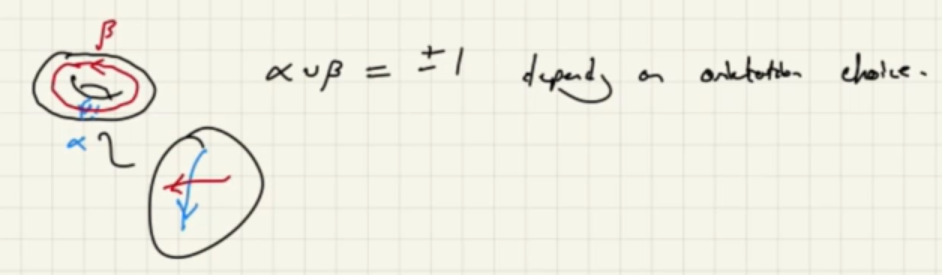 β
α ∪ β = ± 1 depends on orientation choice.
α